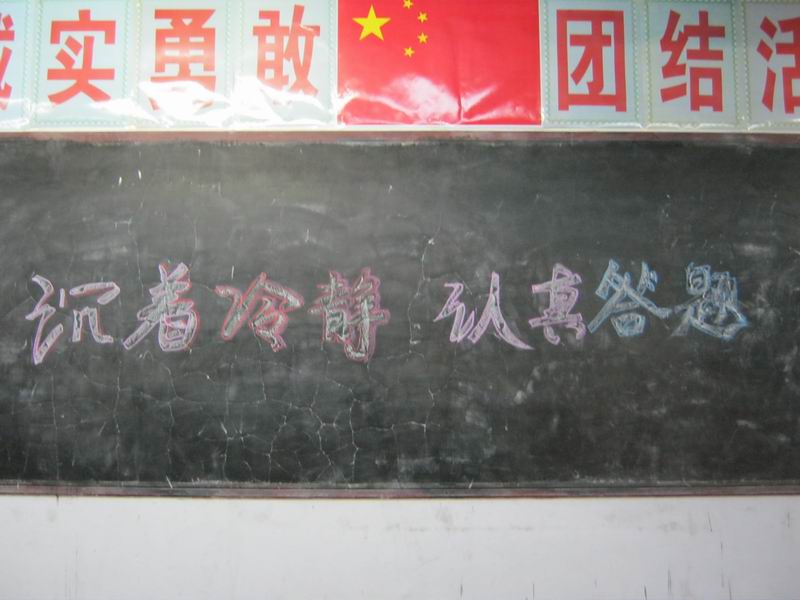 诚实勇敢 团结活
沉着冷静 认真答题